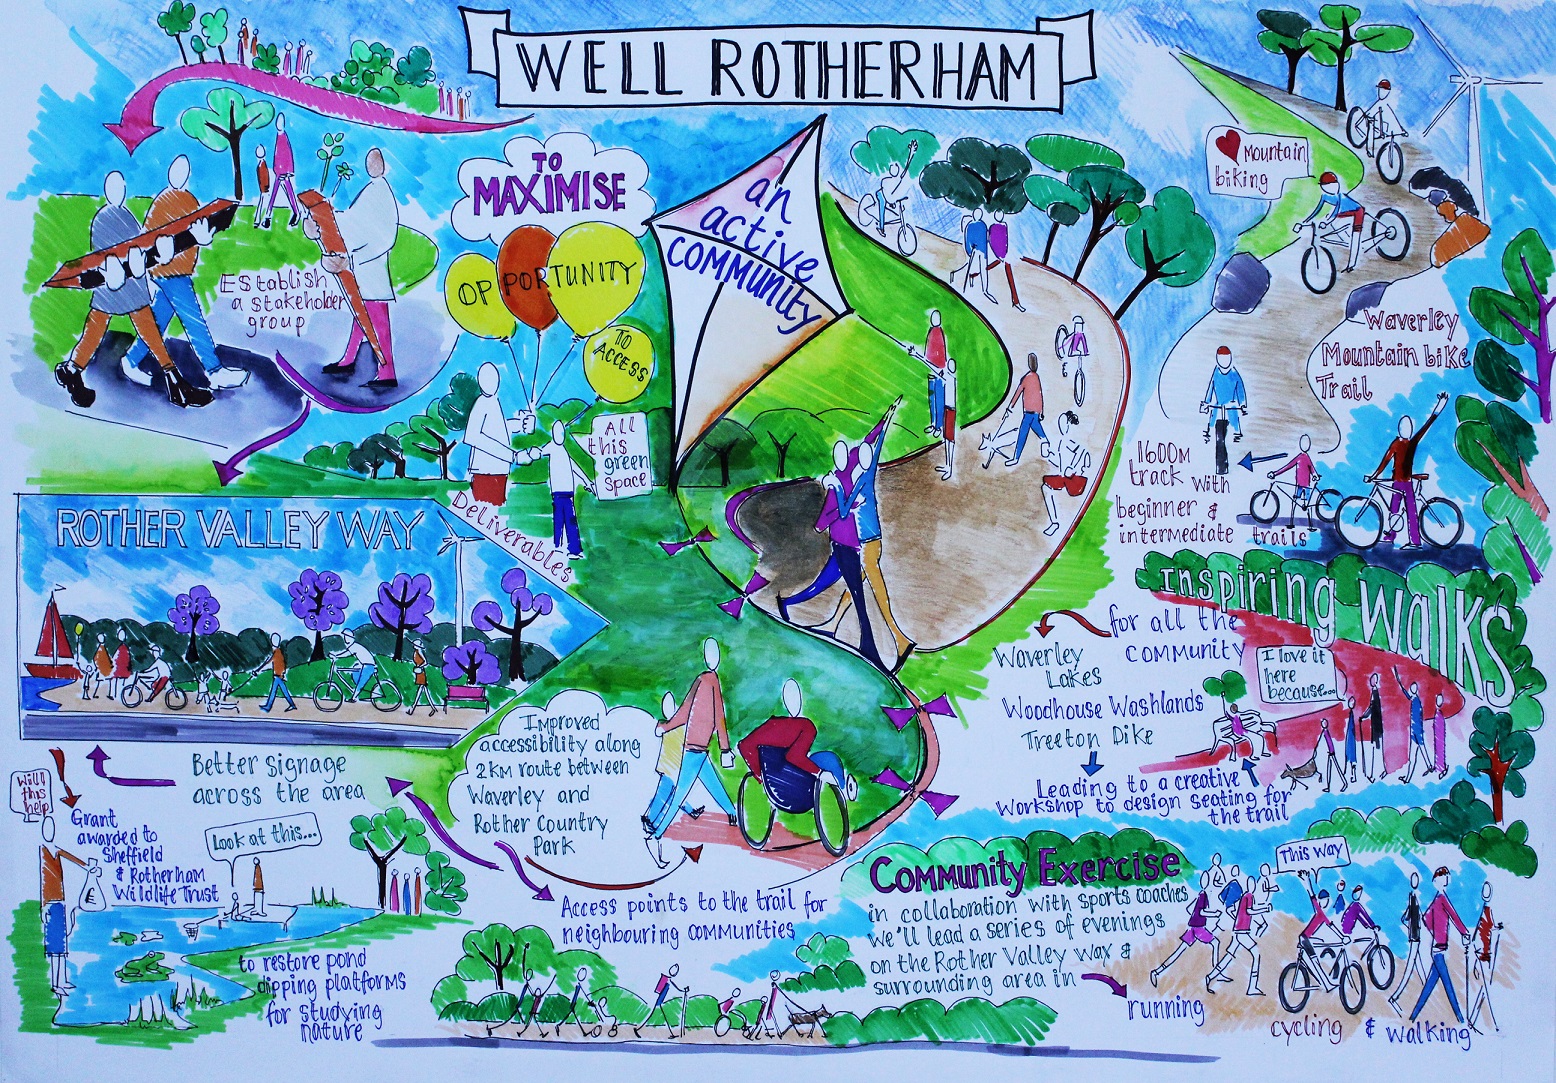 WELL ROTHERHAM
TO
MAXIMISE
OPPORTUNITY
TO
ACCESS
All
this
green
space
an
active
COMMUNITY
Establish
a stakeholder
group
Deliverables
♥ Mountain
biking
Waverley
Mountain bike
Trail
1600M
track with
beginner &
intermediate trails
ROTHER VALLEY WAY
Inspiring Walks
for all the
COMMUNITY
I love it
here
because...
Waverley
Lakes
Woodhouse Washlands
Treeton Dike
Leading to a creative
Workshop to design seating for
the trail
Better signage
across the area
Improved
accessibility along
2KM route between
Waverley and
Rother Country
Park
Access points to the trail for
neighbouring communities
Will
this
help
Grant
awarded to
Sheffield
& Rotherham
Wildlife Trust
£
Look at this...
to restore pond
dipping platforms
for studying
nature
Community Exercise
in collaboration with sports coaches
we'll lead a series of evenings
on the Rother Valley Way &
surrounding area in
This way
running
cycling & walking